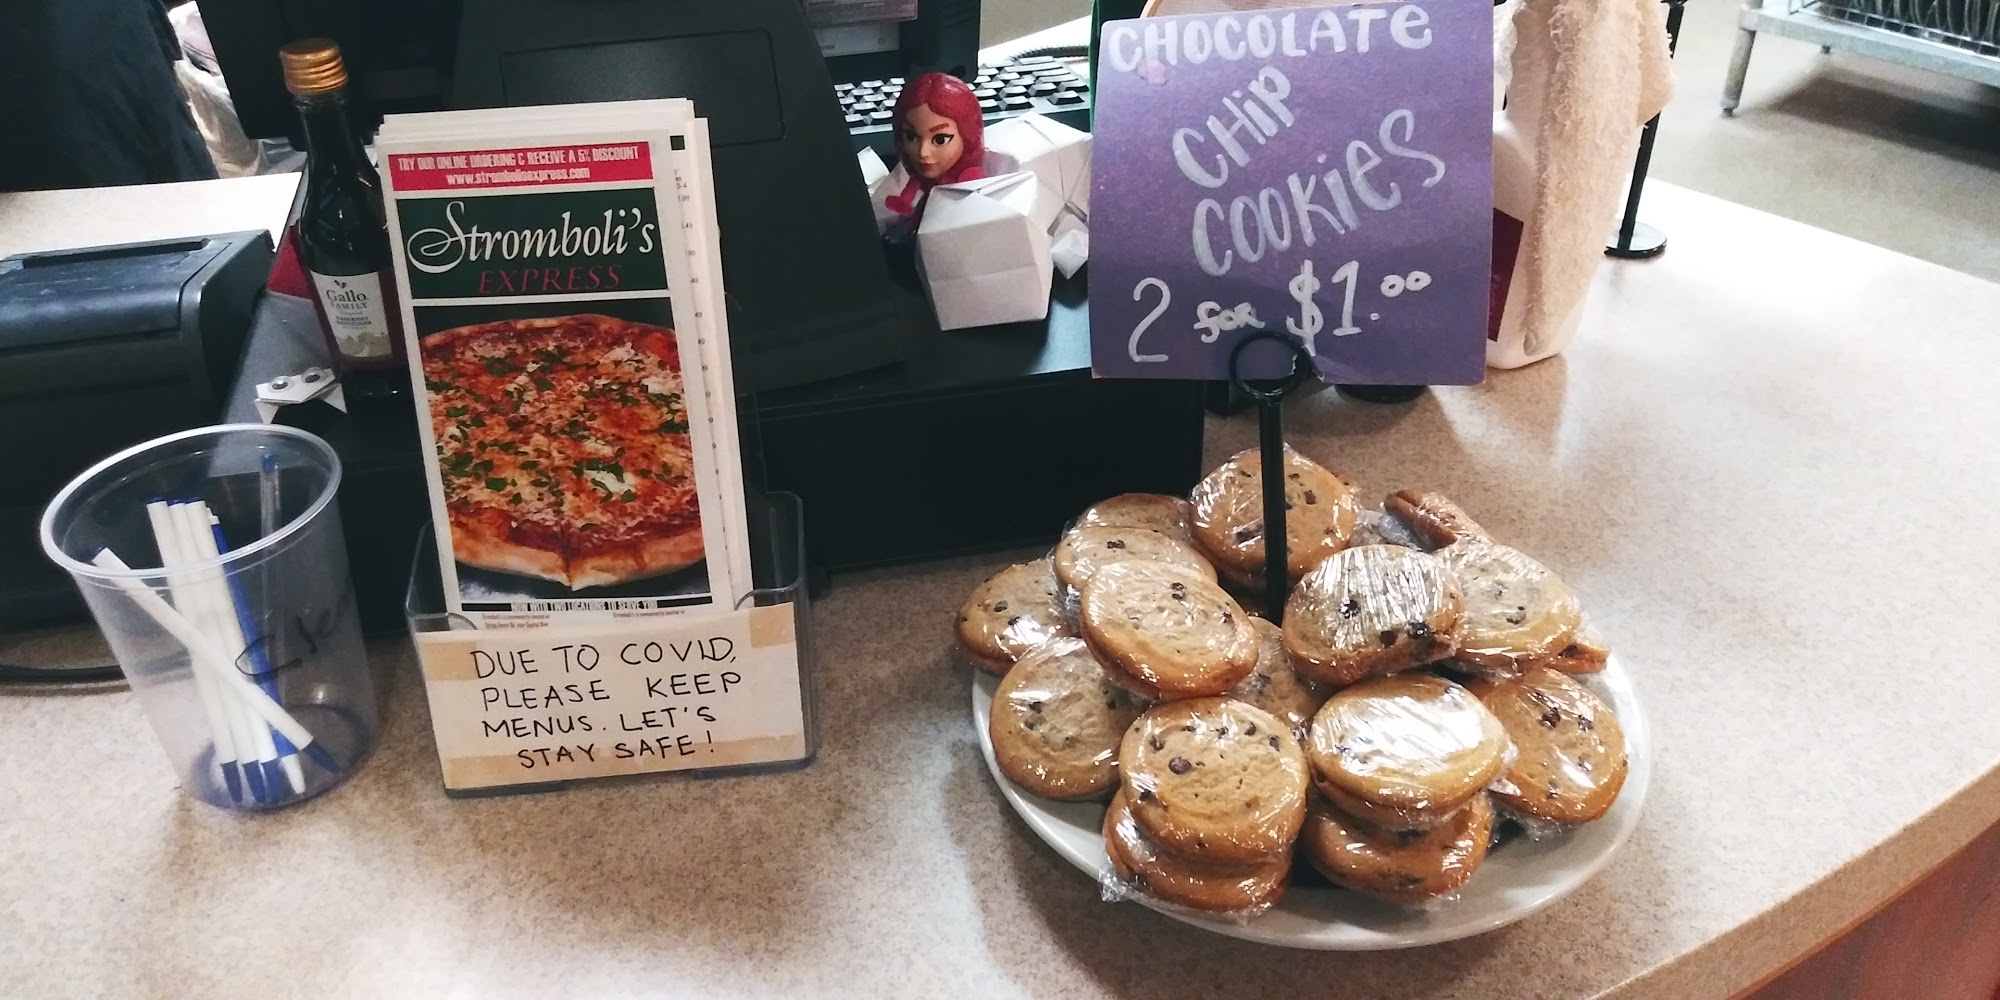 TRY OUR ONLINE ORDERING & RECEIVE A 5% DISCOUNT
www.strombolisexpress.com
Stromboli's
EXPRESS
NOW WITH TWO LOCATIONS TO SERVE YOU
DUE TO COVID,
PLEASE KEEP
MENUS. LET'S
STAY SAFE!
Gallo
FAMILY
CHOCOLATE
CHIP
COOKIES
2 FOR $1.00